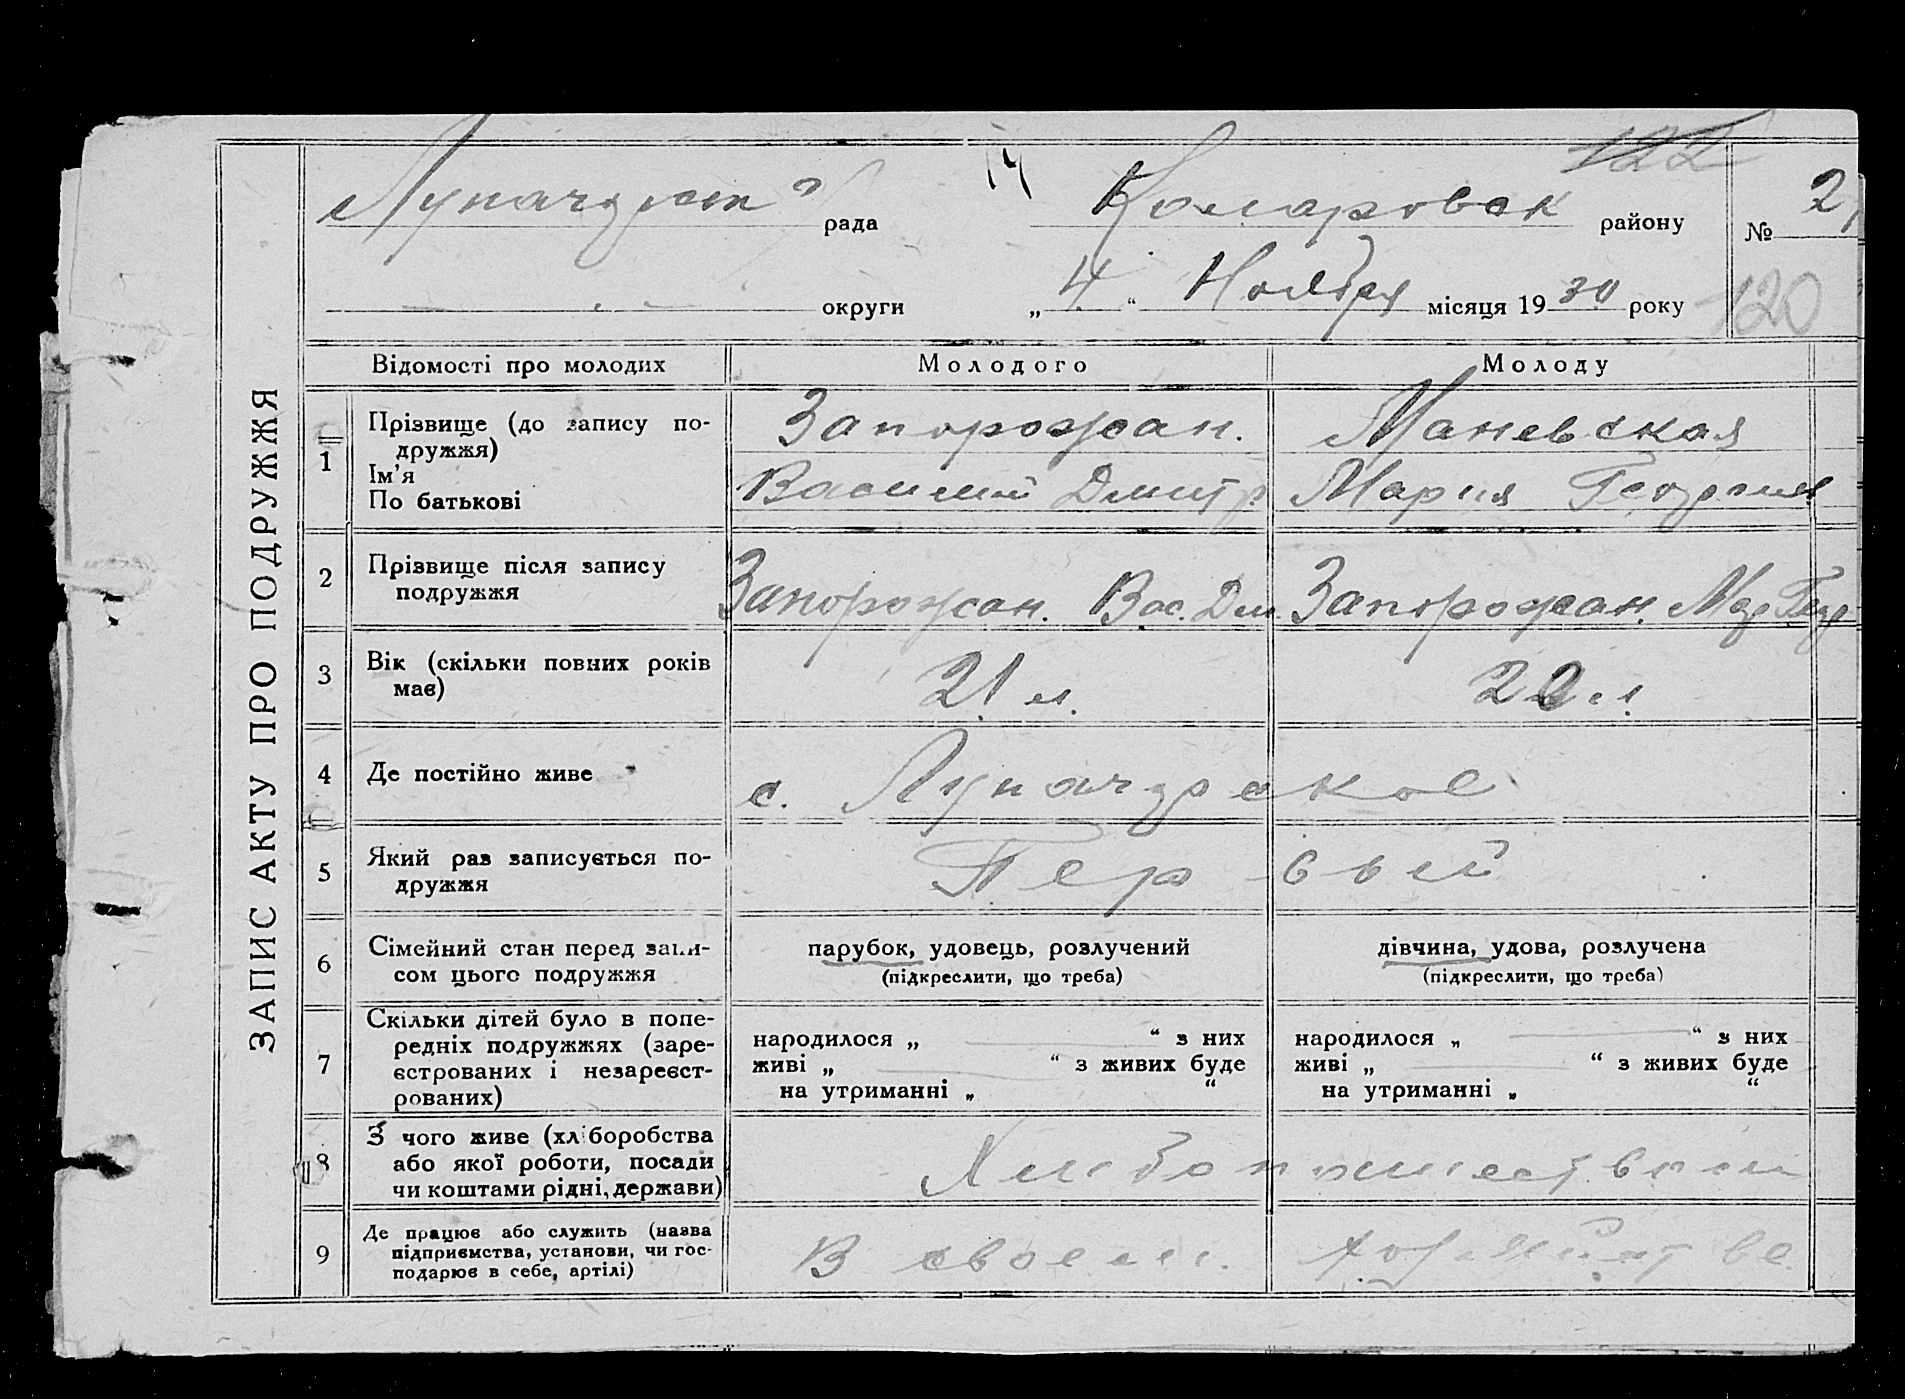 ЗАПИС АКТУ ПРО ПОДРУЖЖЯ
122
рада Комаровск району № 2
округи „4“ Ноября місяця 1930 року 120
Відомості про молодих Молодого Молоду
1 Прізвище (до запису по-
дружжя) Запорожан. Маневская
Ім'я
По батькові Василий Дмитр. Мария Георгиев
2 Прізвище після запису
подружжя Запорожан. Вас. Дм. Запорожан. Мар Геор
3 Вік (скільки повних років
має) 21 л. 22 л.
4 Де постійно живе с. Луначарское
5 Який раз записується по-
дружжя Первый
6 Сімейний стан перед запи-
сом цього подружжя
парубок, удовець, розлучений дівчина, удова, розлучена
(підкреслити, що треба) (підкреслити, що треба)
7 Скільки дітей було в попе-
редніх подружжях (заре-
єстрованих і незареєст-
рованих)
народилося „ “ з них народилося „ “ з них
живі „ “ з живих буде живі „ “ з живих буде
на утриманні „ “ на утриманні „ “
8 З чого живе (хліборобства
або якої роботи, посади
чи коштами рідні, держави) Хлебопашеством
9 Де працює або служить (назва
підприємства, установи, чи гос-
подарює в себе, артілі) В своем. хозяйстве.